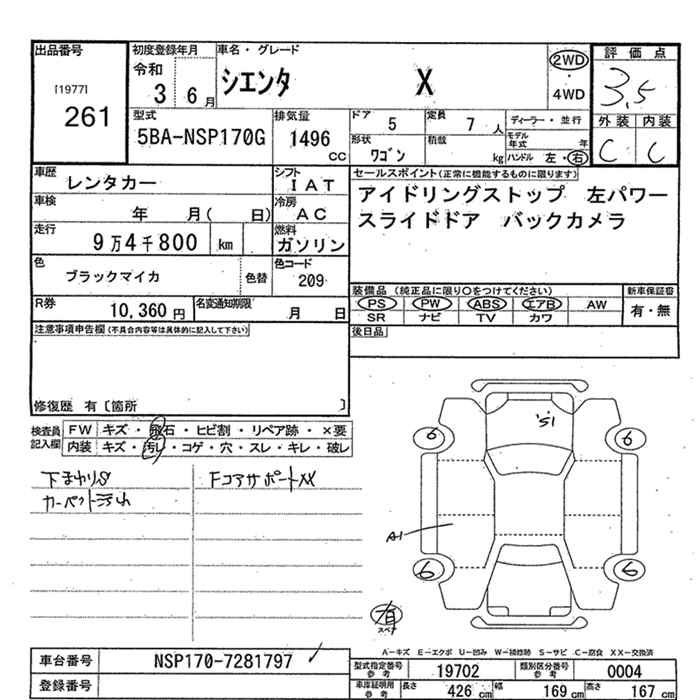 出品番号
[1977]
261
初度登録年月
令和
3 6月
車名・グレード
シエンタ X
2WD
・
4WD
評価点
3.5
外装 内装
C C
型式
5BA-NSP170G
排気量
1496 cc
ドア 5
定員 7 人
形状 ワゴン
積載 kg
ディーラー・並行
モデル年式 年
ハンドル 左・右
車歴 レンタカー
シフト IAT
車検 年 月( 日)
冷房 AC
走行 9万4千800 km
燃料 ガソリン
色 ブラックマイカ 色替
色コード 209
R券 10,360円
名変通知期限 月 日
セールスポイント(正常に機能するものに限ります)
アイドリングストップ 左パワー
スライドドア バックカメラ
装備品 (純正品に限り○をつけてください)
新車保証書
PS PW ABS エアB AW
有・無
SR ナビ TV カワ
後日品
注意事項申告欄(不具合内容等は具体的に記入して下さい)
修復歴 有〔箇所 〕
検査員記入欄
FW キズ・飛石・ヒビ割・リペア跡・×要
内装 キズ・汚レ・コゲ・穴・スレ・キレ・破レ
下まわりS
カーペット汚れ
FコアサポートXX
'51
6 6
A1
6 6
有
スペア
A-キズ E-エクボ U-凹み W-補修跡 S-サビ C-腐食 XX-交換済
車台番号 NSP170-7281797
登録番号
型式指定番号 参考 19702
類別区分番号 参考 0004
車庫証明用 参考
長さ 426 cm
幅 169 cm
高さ 167 cm